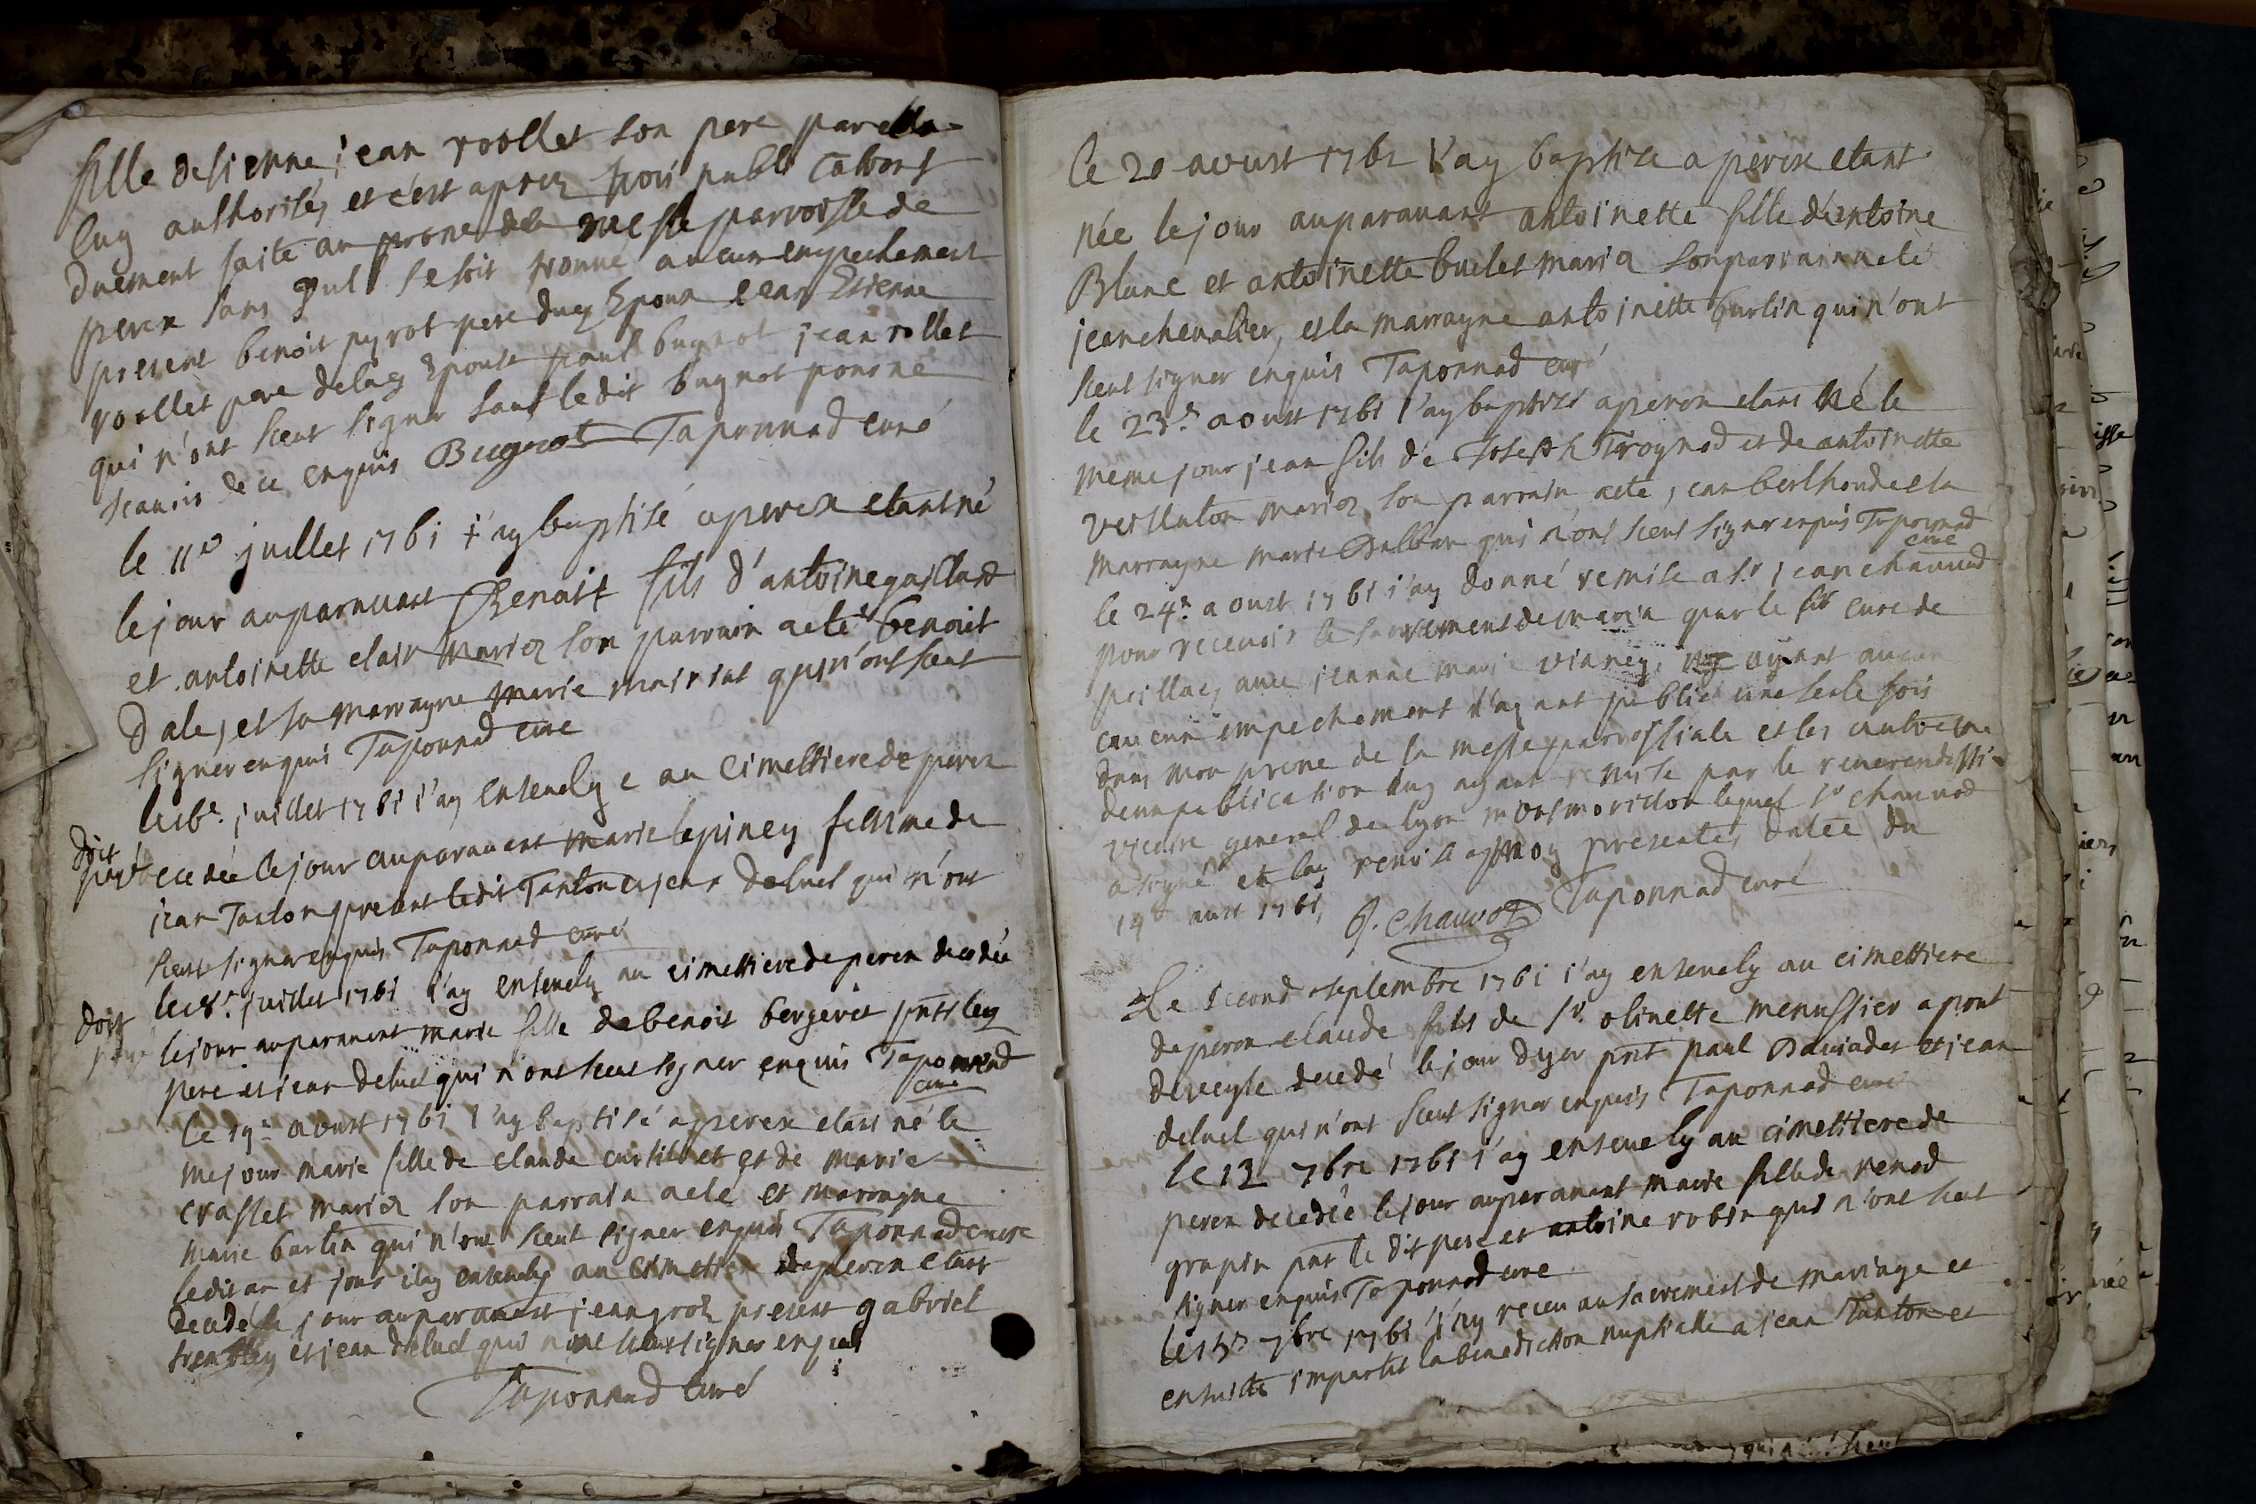 fille de sienne jean rollet son pere par elle
luy authorisés et c'est aprez trois publi
duement faite au prone de la messe parroisse de
perex sans qu'il se soit trouvé aucun empechement
present benoit pyrot pere duq Epoux jean Etienne
rollet pere delaq Epouse paul bugnot jean rollet
qui n'ont sceut signer sauf ledit bugnot pour ne
scavoir de ce enquis Bugnot Taponnad curé
le 11e juillet 1761 j'ay baptisé a perex etant né
le jour auparavant Benoit fils d'antoine gaillard
et antoinette clair mariez son parrain a eté benoit
dale, et sa marrayne marie mairiat qui n'ont sceut
signer enquis Taponnad cure
le 16e. juillet 1761 j'ay ensevely e au cimettiere de perex
doit
decedée le jour auparavant marie lepiney femme de
jean Tanton present ledit Tanton et jean deluel qui n'ont
sceut signer enquis Taponnad curé
le 18e. juillet 1761 j'ay ensevely au cimettiere de perex decedée
doit
le jour auparavant marie fille de benoit bergeret pnts ley
pere et jean deluel qui n'ont sceut signer enquis Taponnad
curé
le 19e aoust 1761 j'ay baptisé a perex etant né le
me jour marie fille de claude curtillet et de marie
crasset mariez son parrain a eté et marrayne
marie burtin qui n'ont sceut signer enquis Taponnad cure
ledit an et jour j'ay ensevely au cimettiere de perex etant
decedé le jour auparavant jean groz present gabriel
et jean deluel qui n'ont sceut signer enquis
Taponnad curé
le 20 aoust 1761 j'ay baptize a perex etant
née le jour auparavant antoinette fille d'antoine
Blanc et antoinette buclet mariez son parrain a eté
jean chevalier, et la marrayne antoinette burtin qui n'ont
sceut signer enquis Taponnad curé
le 23e aoust 1761 j'ay baptizé a perex etant né le
meme jour jean fils de Joseph Troynod et de antoinette
mariez son parrain a eté jean berthoud et la
marrayne marie Dalban qui n'ont sceut signer enquis Taponnad
cure
le 24e aoust 1761 j'ay donné remise a sr jean chauvad
pour recevoir le sacrement de maria par le sr cure de
prillac, avec jeanne marie vianey, ny ayant aucun
aucun empechement l'ayant publié une seule fois
dans mon prone de la messe parroissiale et les
de une publication luy ayant remise par le reverendissi-
vicaire general de lyon montmorillon lequel sr chauvad
a signé et laq remise a moy presentée, datée du
19e aust 1761, J. chauvot Taponnad curé
Le second septembre 1761 j'ay ensevely au cimettiere
de perex claude fils de sr. olinette menussier a pont
deveyle decedé le jour dyer pnt paul Daujadet et jean
deluel qui n'ont sceut signer enquis Taponnad curé
le 12 7bre 1761 j'ay ensevely au cimettiere de
perex decedée le jour auparavant marie fille de renod
grapin pnt le dit pere et antoine robin qui n'ont sceut
signer enquis Taponnad cure
le 15e 7bre 1761 j'ay receu au sacrement de mariage et
ensuitte impartit la benediction nuptialle a jean Tanton et